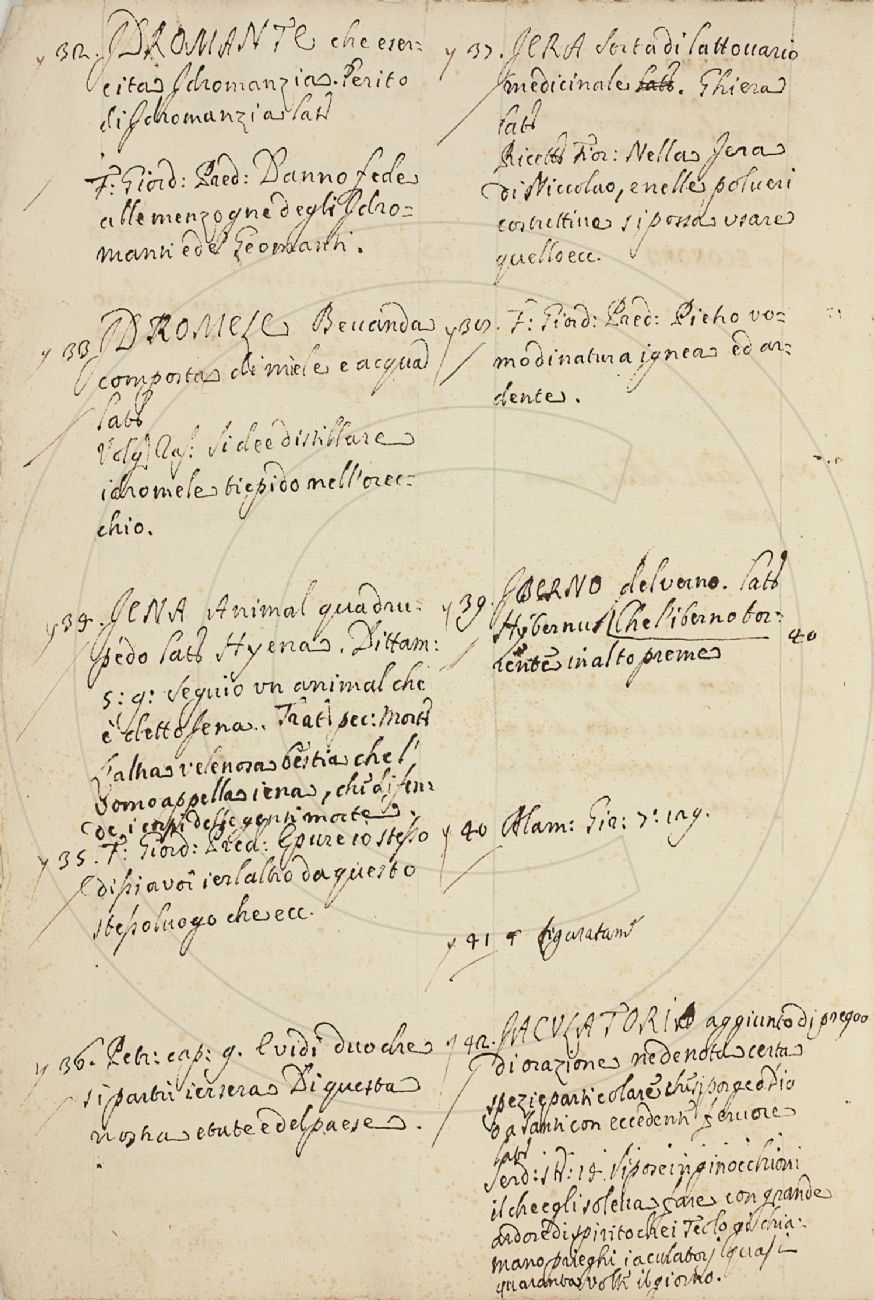 y 32. IDROMANTE che eser:
cita Idromanzia. Perito
di Idromanzia lat̃
F: Giord: Pred: Danno fede
alle menzogne degli Idro=
manti e de' Geomanti.
y 33 IDROMELE Bevanda
composta di miele e acqua
lat̃
Volg: Ras: Si dee distillare
idromele tiepido nell'orec=
chio.
y 34. IENA Animal quadru:
pedo lat̃ Hyena. Dittam:
5: 9: Seguio un animal che
è detto Iena. Trat: pec: mort̃
L'altra velenosa bestia che l'
uomo appella iena, che disen:
de, i corpi delle genti morte.
y 35. F: Giord: Pred: Epure io stesso
dissi a voi ierlaltro da questo
stesso luogo che ecc.
y 36. Petr: cap: 9. E vidi duo che
si partir iersera Di questa
nostra etate e del paese.
y 37. IERA Sorta di lattovario
medicinale lat̃. Ghiera
lat̃
Ricett̃ Fior: Nella Iera
di Niccolao, e nelle polveri
costrettive si possa usare
quello ecc.
y 38. F: Giord: Pred: Pietro uo=
mo di natura ignea ed ar:
dente.
y 39. IBERNO del verno. lat̃
Hybernus Che l'iberno tor= 40
rente in alto preme
y 40 Alam: Gir: 7: 119.
y 41 figuratam̃
y 42. IACULATORIO aggiunto di prego o
di orazione ne denota certa
spezie particolare che si porge a Dio
o a Santi con eccedente fervore
lat̃
Serd: St: 14. Si pose in ginocchioni
il che egli soleva fare con grande
ardore di spirito che i Teologi chia:
mano prieghi iaculatorj quasi
quaranta volte il giorno.